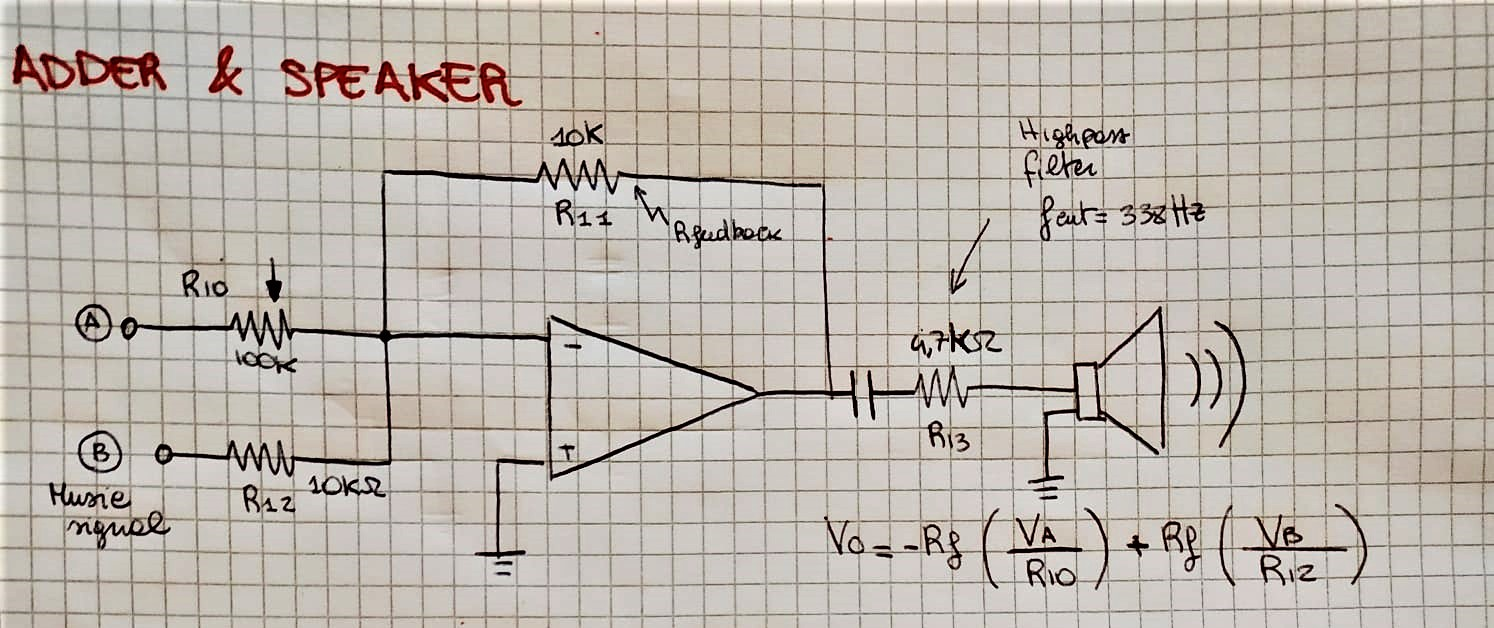 ADDER & SPEAKER
10K
R11
Rfeedback
Highpass
filter
fcut = 338 Hz
R10
100K
A
-
+
4,7kΩ
R13
B
Music
signal
R12
10KΩ
Vo = -Rf (VA/R10) + Rf (VB/R12)